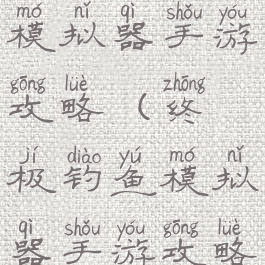 mó nǐ qì shǒu yóu
模拟器手游
gōng lüè zhōng
攻略（终
jí diào yú mó nǐ
极钓鱼模拟
qì shǒu yóu gōng lüè
器手游攻略